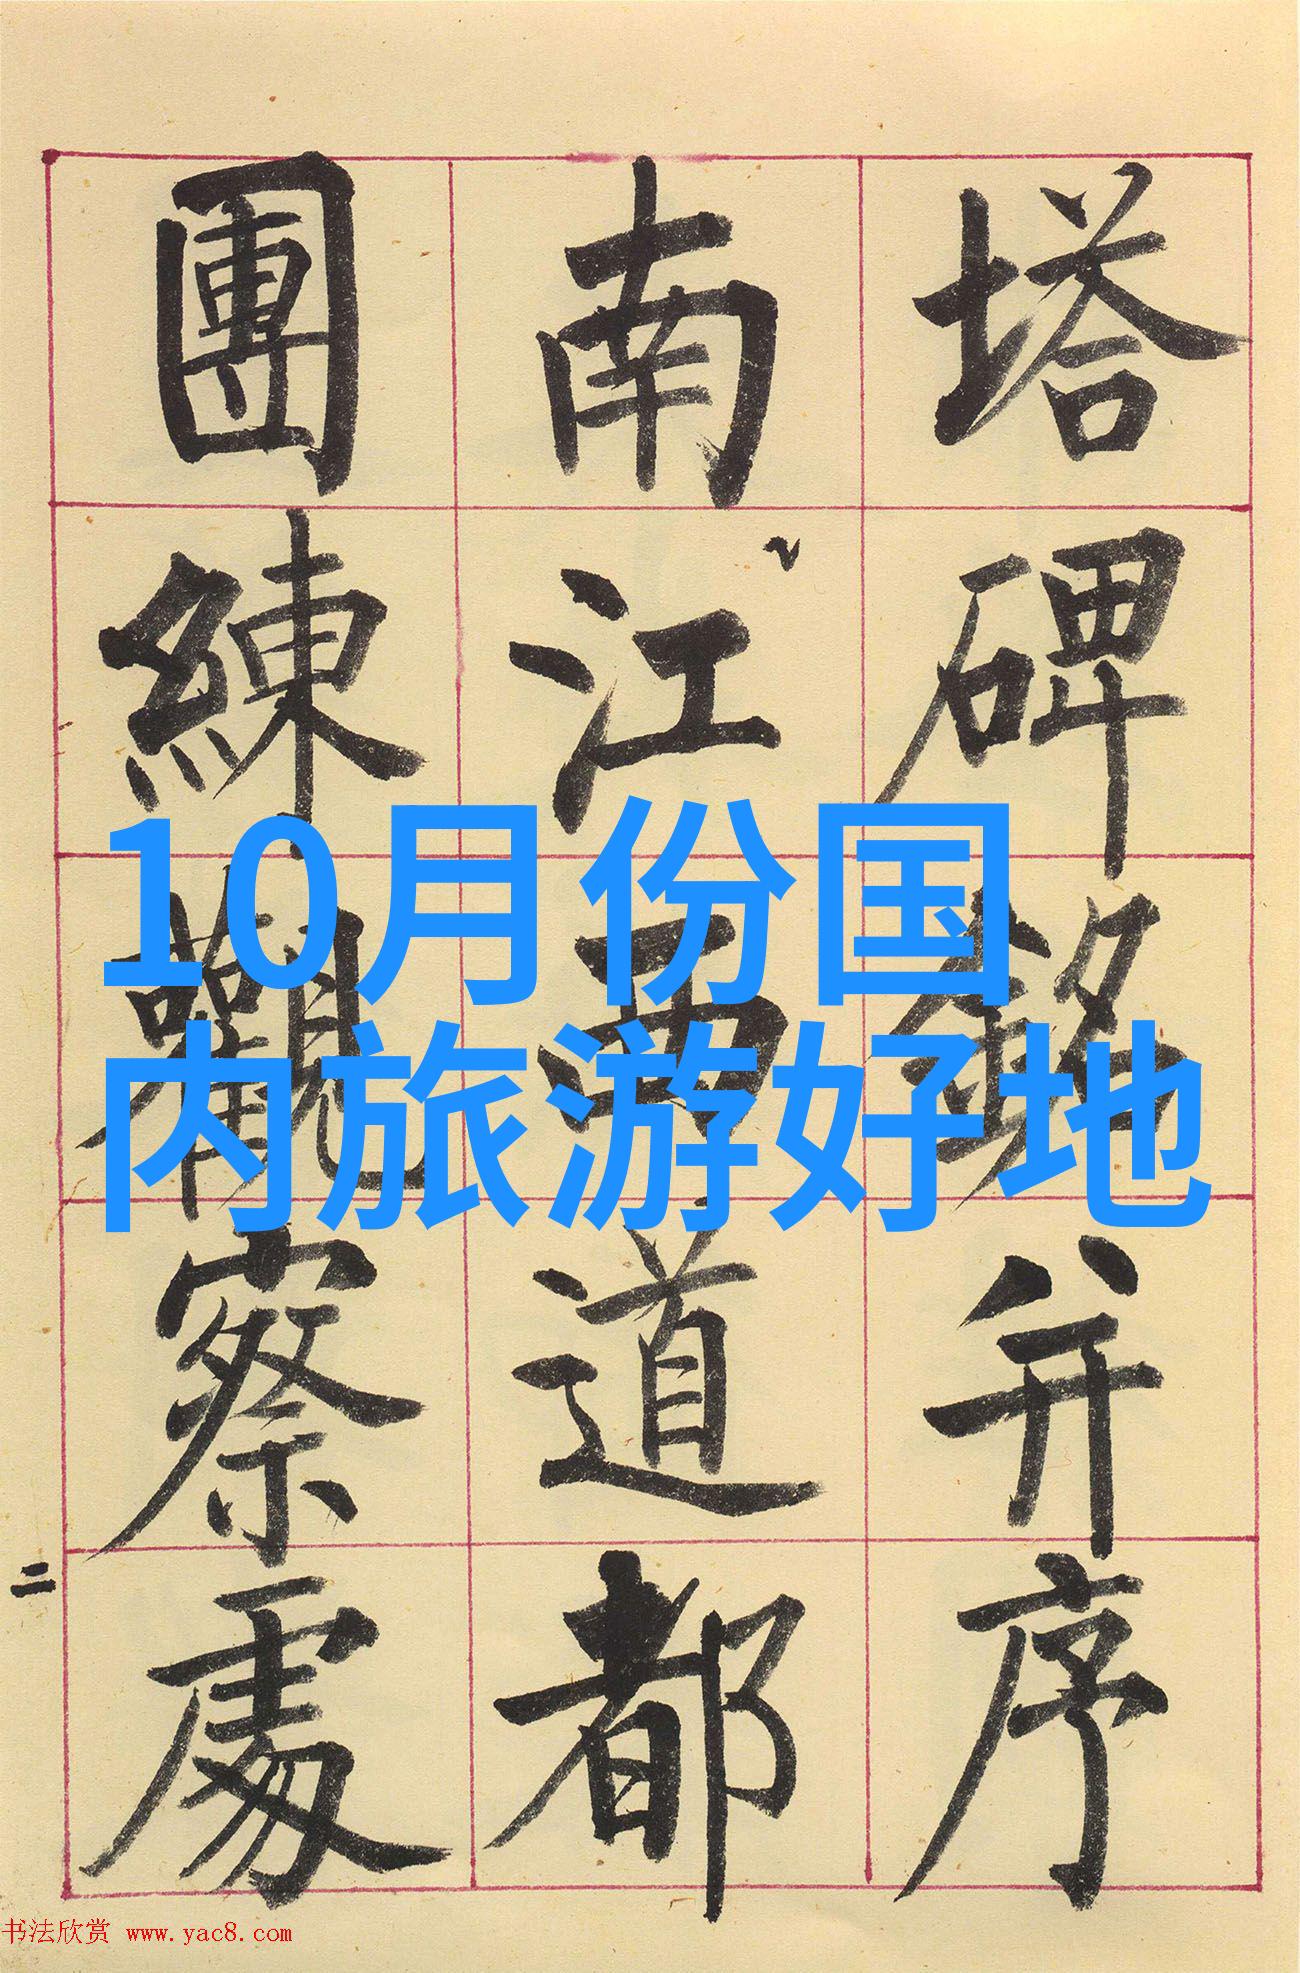 塔碑銘并序
南江西道都
團練觀察處
二
10月份国
内旅游好地
书法欣赏 www.yac8.com